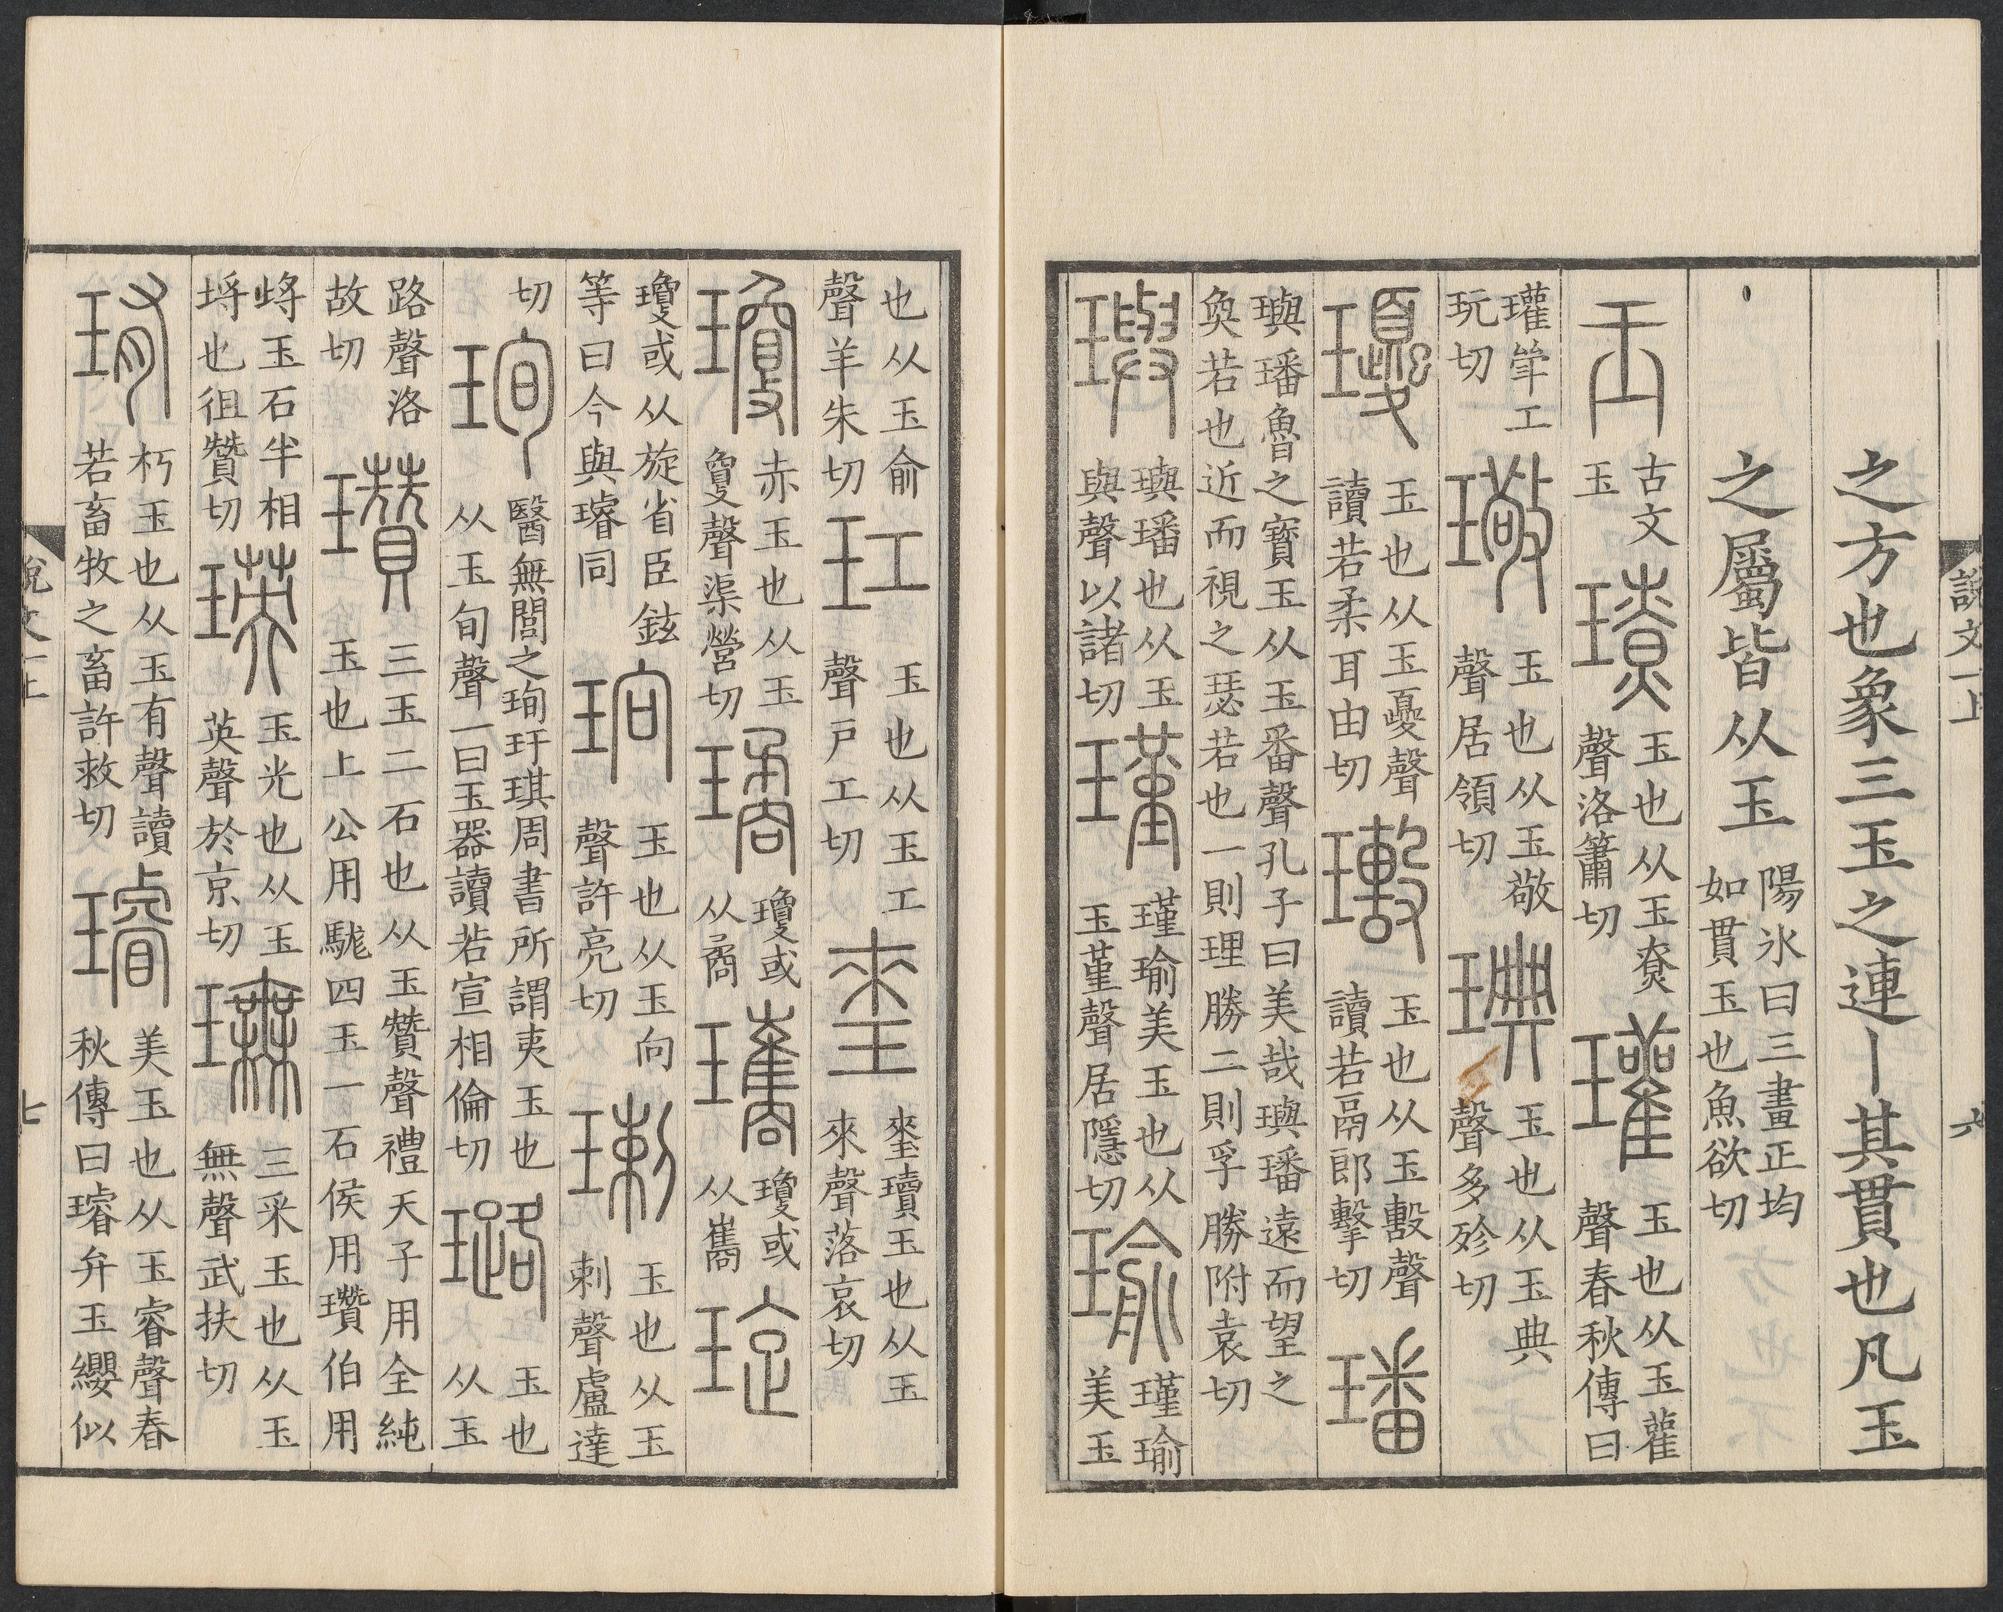 說文一上 六
之方也象三玉之連丨其貫也凡玉
之屬皆从玉 陽冰曰三畫正均如貫玉也魚欲切
𤣪 古文玉 璙 玉也从玉尞聲洛簫切 瓘 玉也从玉雚聲春秋傳曰
瓘斝工玩切 璥 玉也从玉敬聲居領切 琠 玉也从玉典聲多殄切
瓇 玉也从玉夒聲讀若柔耳由切 𤪌 玉也从玉毄聲讀若鬲郎擊切 璠
璵璠魯之寶玉从玉番聲孔子曰美哉璵璠遠而望之奐若也近而視之瑟若也一則理勝二則孚勝附袁切
璵 璵璠也从玉與聲以諸切 瑾 瑾瑜美玉也从玉堇聲居隱切 瑜 瑾瑜美玉
也从玉俞聲羊朱切 玒 玉也从玉工聲戶工切 琜 㻔瓄玉也从玉來聲落哀切
瓊 赤玉也从玉敻聲渠營切 璚 瓊或从矞 瓗 瓊或从巂 琁
瓊或从旋省臣鉉等曰今與璿同 珦 玉也从玉向聲許亮切 㻝 玉也从玉剌聲盧達
切 珣 醫無閭之珣玗琪周書所謂夷玉也从玉旬聲一曰玉器讀若宣相倫切 璐 玉也从玉
路聲洛故切 瓚 三玉二石也从玉贊聲禮天子用全純玉也上公用駹四玉一石侯用瓚伯用
埒玉石半相埒也徂贊切 瑛 玉光也从玉英聲於京切 璑 三采玉也从玉無聲武扶切
珛 朽玉也从玉有聲讀若畜牧之畜許救切 璿 美玉也从玉睿聲春秋傳曰璿弁玉纓似
說文一上 七